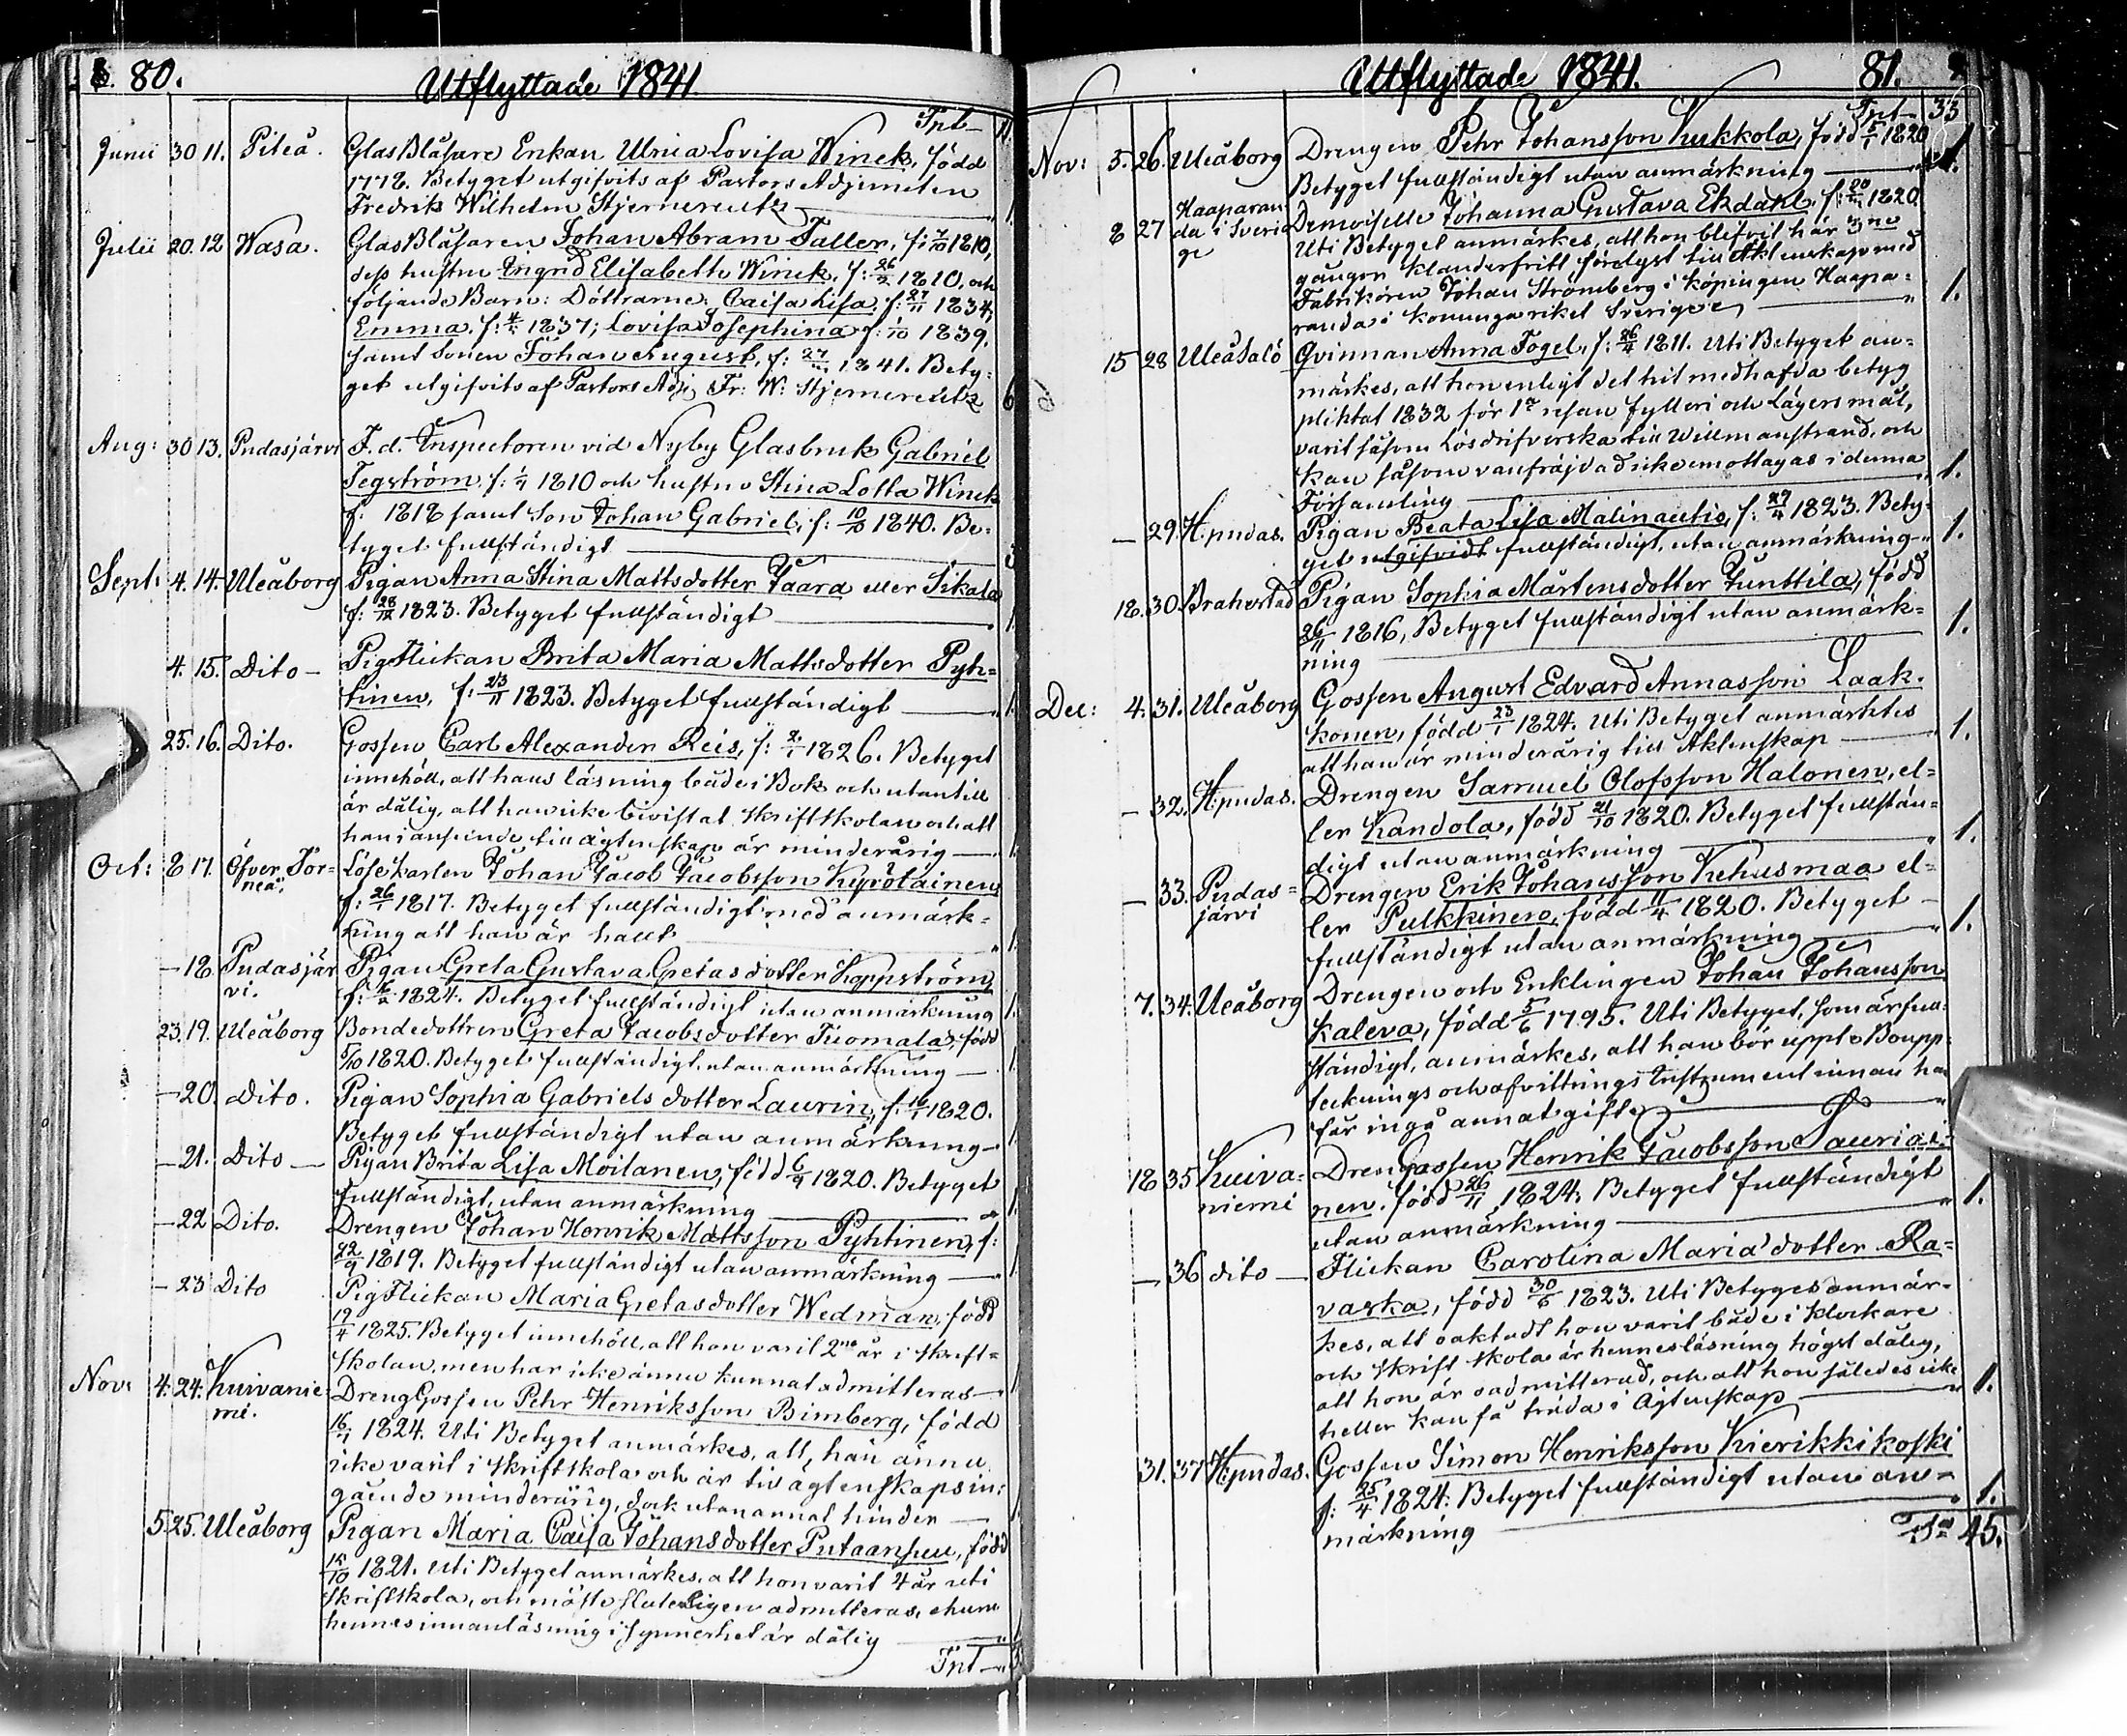 80.
Utflyttade 1841
Tpt 11
Junii 30 11. Piteå. GlasBlåsare Enkan Ulrica Lovisa Winck, född
1778. Betyget utgifvits af Pastors Adjuncten
Fredrik Wilhelm Stjernereutz 1.
Julii 20. 12 Wasa. GlasBlåsaren Johan Abram Faller, f: 7/10 1810,
dess hustru Ingrid Elisabeth Winck, f: 26/2 1810, och
följande Barn: Döttrarne: Caisa Lisa, f: 27/11 1834,
Emma, f: 1837; Lovisa Josephina f: 1/10 1839,
samt Sonen Johan August, f: 27/ 1841. Bety-
get utgifvits af Pastors Adj: Fr: W: Stjernereutz 6
Aug: 30 13. Pudasjärvi F. d. Inspectoren vid Nyby Glasbruk Gabriel
Tegström, f: 1810 och hustru Stina Lotta Winck
f: 1818 samt Son Johan Gabriel, f: 10/10 1840. Be-
tyget fullständigt 3
Sept: 4. 14. Uleåborg Pigan Anna Stina Mattsdotter Jaara eller Sikala
f: 28/12 1823. Betyget fullständigt 1.
4. 15. Dito — PigFlickan Brita Maria Mattsdotter Pyh=
tinen, f: 23/11 1823. Betyget fullständigt — 1.
25. 16. Dito. Gossen Carl Alexander Reis, f: 2/1 1826. Betyget
innehöll, att hans läsning både i Bok och utantill
är dålig, att han icke bivistat Skriftskolan och att
han i anseende till ägtenskap är minderårig —
Oct: 8 17. Öfver Tor= Lösekarlen Johan Jacob Jacobsson Kyrölainen
neå. f: 26/1 1817. Betyget fullständigt med anmärk=
ning att han är halt 1
— 18. Pudasjär Pigan Greta Gustava Gretasdotter Koppström,
vi. f: 1824. Betyget fullständigt utan anmärkning 1.
23. 19. Uleåborg Bondedottren Greta Jacobsdotter Tuomala, född
5/10 1820. Betyget fullständigt utan anmärkning —
— 20. Dito. Pigan Sophia Gabriels dotter Laurin, f. 16/1 1820.
Betyget fullständigt utan anmärkning —
— 21. Dito — Pigan Brita Lisa Moilanen, född 6/9 1820. Betyget
fullständigt, utan anmärkning
— 22 Dito. Drengen Johan Henrik Mattsson Pyhtinen, f:
22/9 1819. Betyget fullständigt utan anmärkning —
— 23 Dito PigFlickan Maria Gretasdotter Wedman, född
19/4 1825. Betyget innehöll, att hon varit 2ne år i Skrift=
skolan, men har icke ännu kunnat admitteras —
Nov: 4. 24. Kuivanie= DrengGossen Pehr Henriksson Bimberg, född
mi. 16/ 1824. Uti Betyget anmärkes, att, han ännu
icke varit i Skriftskola och är till ägtenskaps in=
gående minderårig, dock utan annat hinder —
5. 25. Uleåborg Pigan Maria Caisa Johansdotter Putaansuu, född
/10 1821. Uti Betyget anmärkes, att hon varit 4 år uti
Skriftskola, och måste slutligen admitteras, ehuru
hennes innanläsning i synnerhet är dålig
Tpt —
Utflyttade 1841. 81.
Tpt — 33
Nov: 5. 26. Uleåborg Drengen Pehr Johansson Kukkola, född 5/1 1820
Betyget fullständigt utan anmärkning — 1.
8 27 Haaparan= Demoiselle Johanna Gustava Ekdahl, f: 1820
da i Sveri= Uti Betyget anmärkes, att hon blifvit här 3ne
ge gånger klanderfritt förelyst till Äktenskap med
Fabrikören Johan Strömberg i köpingen Haapa=
randa i konungariket Sverige 1.
15 28 Uleåsalo Qvinnan Anna Fogel, f: 26/4 1811. Uti Betyget an=
märkes, att hon enligt det hit medhafda betyg
pliktat 1832 för 1a resan fylleri och Lägersmål,
varit såsom Lösdrifverska till Willmanstrand, och
kan såsom vanfräjdad icke emottagas i denna
Församling 1.
— 29. H:pudas. Pigan Beata Lisa Malinautio, f: 29/4 1823. Bety-
get utgifvidt fullständigt, utan anmärkning 1.
18. 30. Brahestad Pigan Sophia Mårtensdotter Junttila, född
26/11 1816, Betyget fullständigt utan anmärk=
ning 1.
Dec: 4. 31. Uleåborg Gossen August Edvard Annasson Laak=
konen, född 23/1 1824. Uti Betyget anmärktes
att han är minderårig till Äktenskap — 1.
— 32. H:pudas. Drengen Samuel Olofsson Halonen, el=
ler Kandola, född 21/10 1820. Betyget fullstän=
digt utan anmärkning 1.
— 33. Pudas= Drengen Erik Johansson Kehusmaa el=
järvi ler Pulkkinen, född 11/4 1820. Betyget
fullständigt utan anmärkning 1.
7. 34. Uleåborg Drengen och Enklingen Johan Johansson
Kaleva, född 5/6 1795. Uti Betyget, som är full=
ständigt, anmärkes, att han bör uppte Boupp=
tecknings och afvittrings Instrument innan han
får ingå annat gifte
18 35 Kuiva= DrengGossen Henrik Jacobsson Sauriai=
niemi nen, född 26/11 1824. Betyget fullständigt
utan anmärkning 1.
— 36 dito — Flickan Carolina Maria dotter Ra=
vaska, född 30/6 1823. Uti Betyget anmär=
kes, att oaktadt hon varit både i Klockare
och Skrift skola är hennes läsning högst dålig,
att hon är oadmitterad, och att hon således icke
heller kan få träda i Ägtenskap 1.
31. 37 H:pudas. Gossen Simon Henriksson Kierikkikoski
f: 25/4 1824. Betyget fullständigt utan an=
märkning 1.
Sa 45.